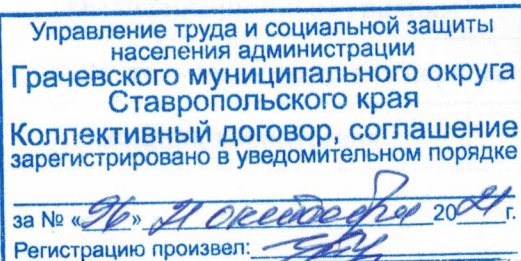 Управление труда и социальной защиты
населения администрации
Грачевского муниципального округа
Ставропольского края
Коллективный договор, соглашение
зарегистрировано в уведомительном порядке
за № «96» 21 октября 2021г.
Регистрацию произвел: